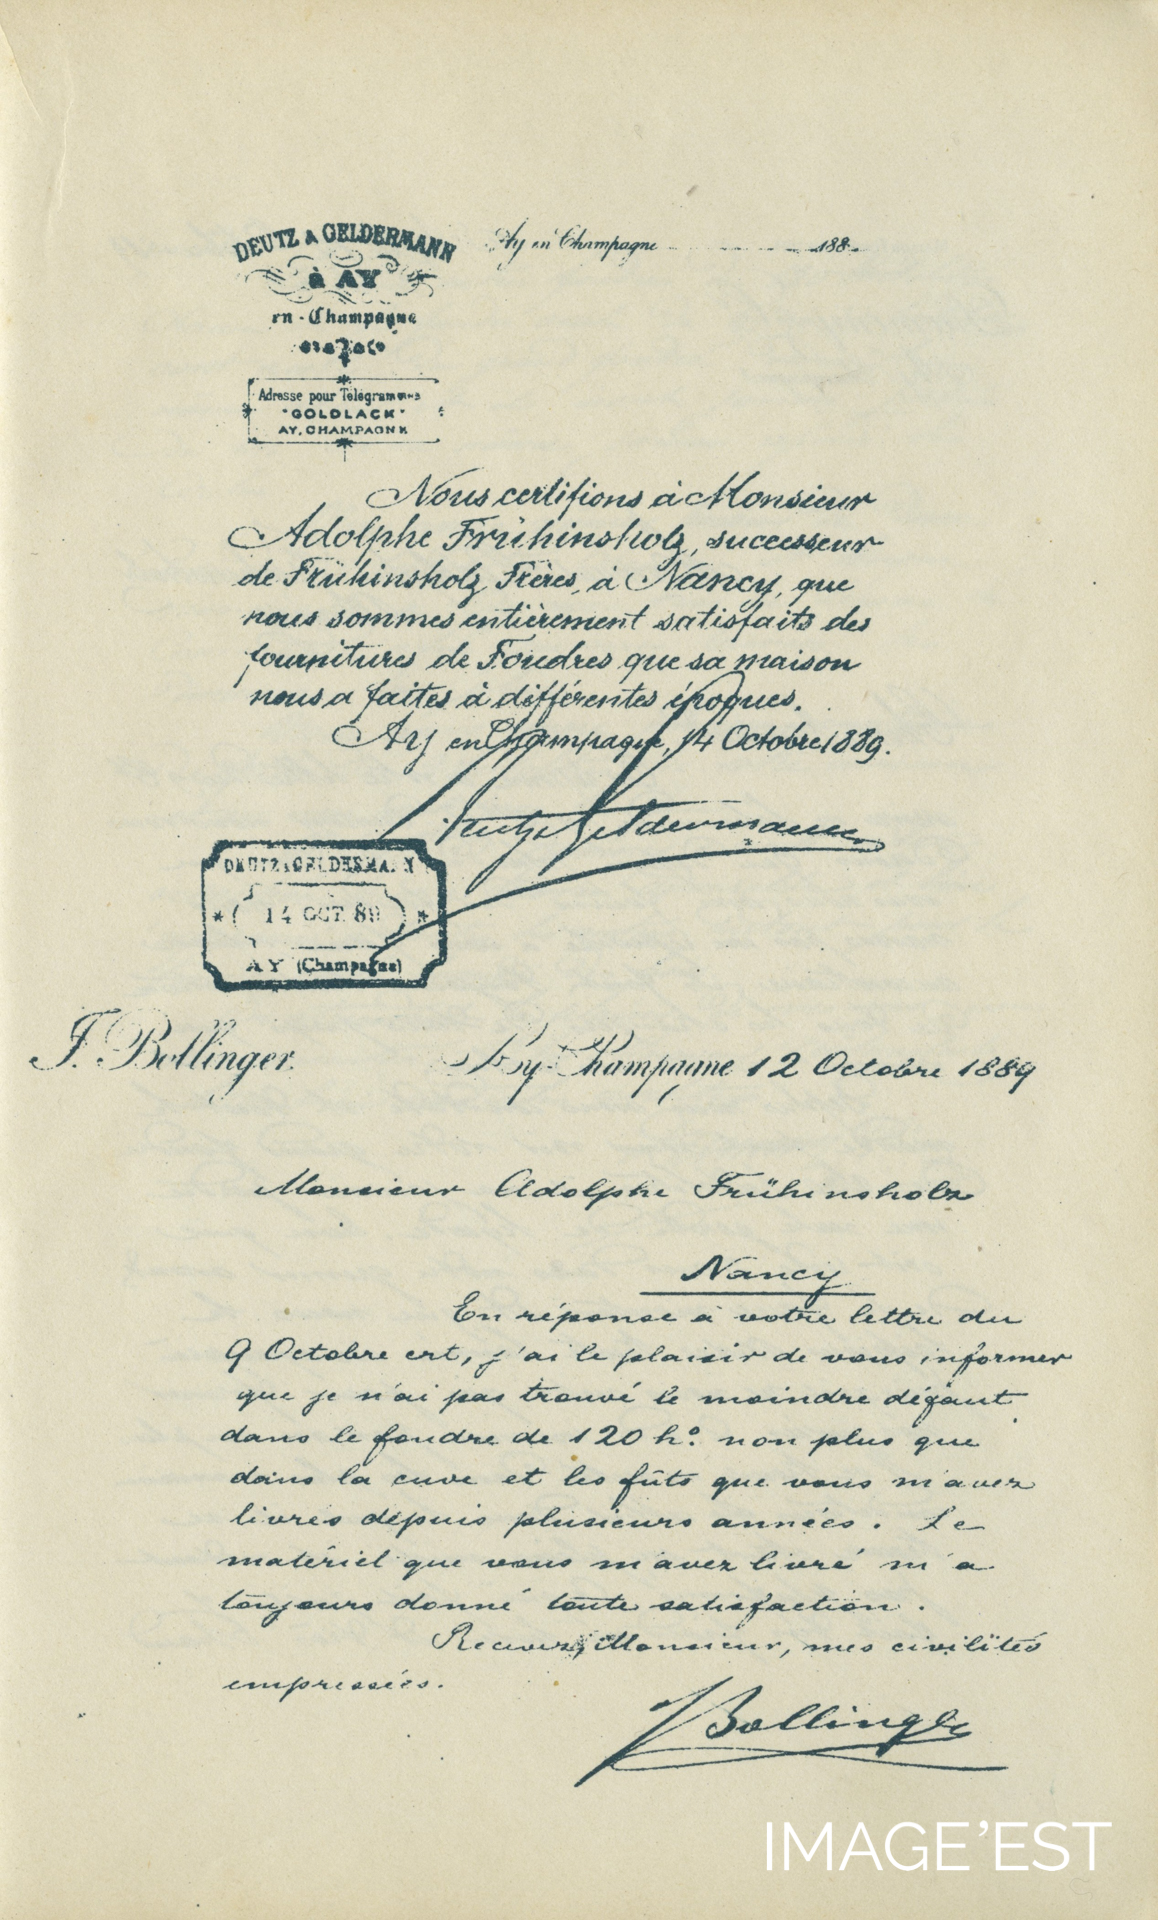 DEUTZ & GELDERMANN
à AY
en-Champagne
Adresse pour Télégrammes
"GOLDLACK"
AY, CHAMPAGNE
Ay en Champagne 188
Nous certifions à Monsieur
Adolphe Frühinsholz, successeur
de Frühinsholz Frères, à Nancy, que
nous sommes entièrement satisfaits des
fournitures de Foudres que sa maison
nous a faites à différentes époques.
Ay en Champagne, 14 Octobre 1889.
Deutz & Geldermann
DEUTZ & GELDERMANN
* 14 OCT 89 *
AY (Champagne)
J. Bollinger.
Ay-Champagne 12 Octobre 1889
Monsieur Adolphe Frühinsholz
Nancy
En réponse à votre lettre du
9 Octobre crt, j'ai le plaisir de vous informer
que je n'ai pas trouvé le moindre défaut
dans le foudre de 120 ho. non plus que
dans la cuve et les fûts que vous m'avez
livrés depuis plusieurs années. Le
matériel que vous m'avez livré m'a
toujours donné toute satisfaction.
Recevez, Monsieur, mes civilités
empressées.
J Bollinger
IMAGE'EST